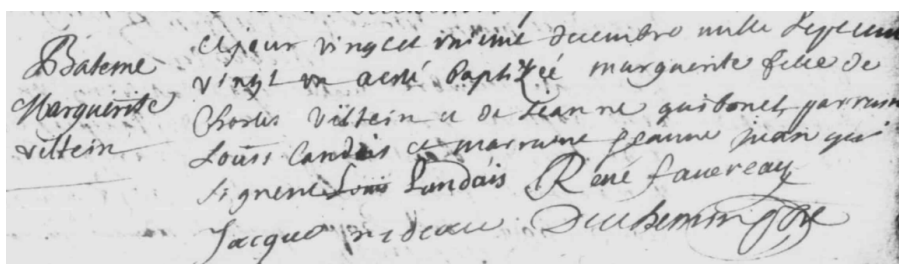 Bateme
Marguerite
viltein
cejour vingt et unieme decembre mille Sept cent
vingt un a esté Baptizéé marguerite fille de
Charles viltein et de Jeanne guibonet, parrain
Louis Landais et marraine Jeanne juan qui
signent Louis Landais René favereau
Jacque nideau